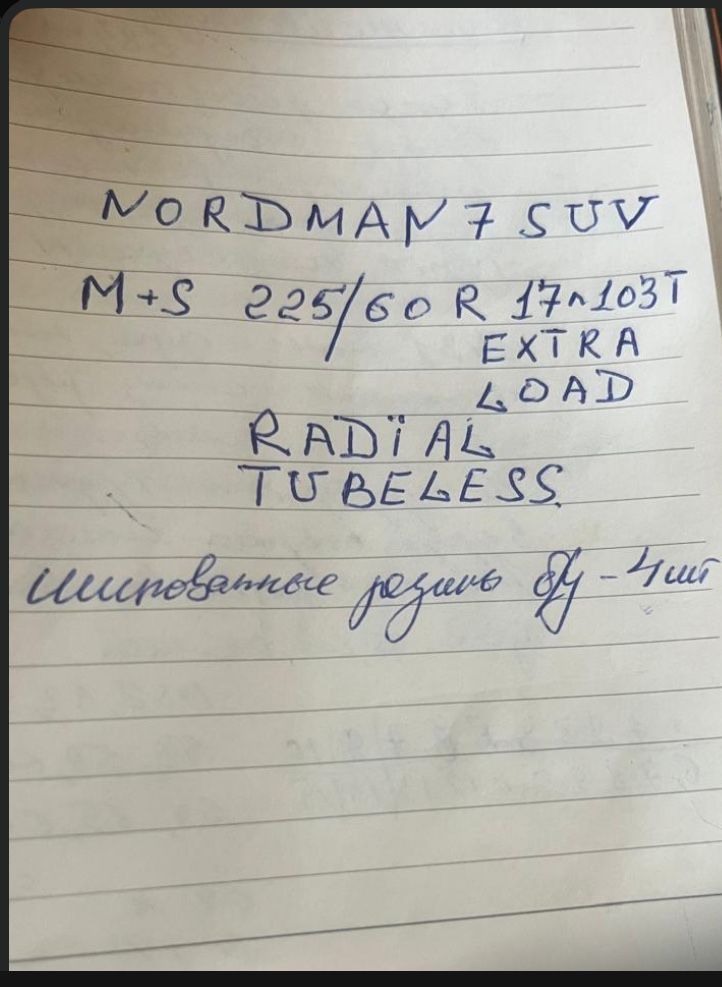 NORDMAN 7 SUV
M+S 225/60 R 17 103T
EXTRA
LOAD
RADIAL
TUBELESS
Шипованные резины б/у - 4 шт